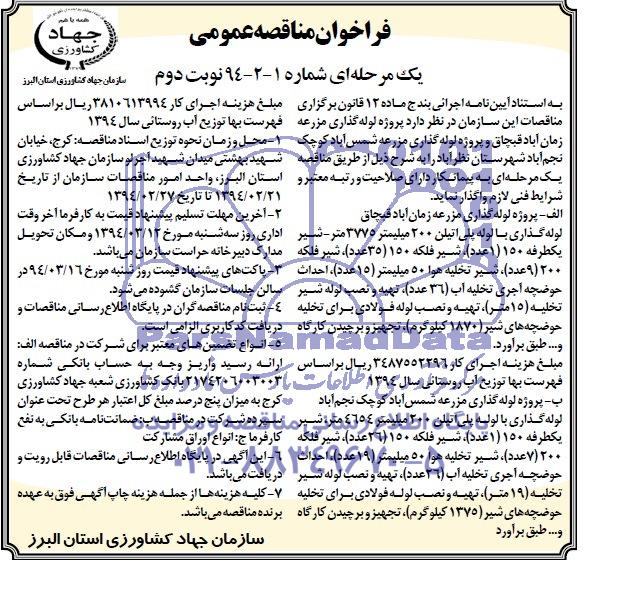 همه با هم
جهاد
کشاورزی
سازمان جهاد کشاورزی استان البرز
فراخوان مناقصه عمومی
یک مرحله‌ای شماره ۱-۲-۹۴ نوبت دوم
به استناد آیین‌نامه اجرائی بند ج ماده ۱۲ قانون برگزاری
مناقصات این سازمان در نظر دارد پروژه لوله‌گذاری مزرعه
زمان‌آباد قبچاق و پروژه لوله‌گذاری مزرعه شمس‌آباد کوچک
نجم‌آباد شهرستان نظرآباد را به شرح ذیل از طریق مناقصه
یک مرحله‌ای به پیمانکار دارای صلاحیت و رتبه معتبر و
شرایط فنی لازم واگذار نماید.
الف- پروژه لوله‌گذاری مزرعه زمان‌آباد قبچاق
لوله‌گذاری با لوله پلی‌اتیلن ۲۰۰ میلیمتر ۳۷۷۵ متر-شیر
یکطرفه ۱۵۰ (۱عدد)، شیر فلکه ۱۵۰ (۳۵عدد)، شیر فلکه
۲۰۰ (۹عدد)، شیر تخلیه هوا ۵۰ میلیمتر (۱۵عدد)، احداث
حوضچه آجری تخلیه آب (۳۶ عدد)، تهیه و نصب لوله شیر
تخلیه (۱۵متر)، تهیه و نصب لوله فولادی برای تخلیه
حوضچه‌های شیر (۱۸۷۰ کیلوگرم)، تجهیز و برچیدن کارگاه
و... طبق برآورد.
مبلغ هزینه اجرای کار ۳۴۸۷۵۵۲۲۹۶ ریال براساس
فهرست بها توزیع آب روستائی سال ۱۳۹۴
ب- پروژه لوله‌گذاری مزرعه شمس‌آباد کوچک نجم‌آباد
لوله‌گذاری با لوله پلی‌اتیلن ۲۰۰ میلیمتر ۴۶۵۴ متر-شیر
یکطرفه ۱۵۰ (۱عدد)، شیر فلکه ۱۵۰ (۲۶عدد)، شیر فلکه
۲۰۰ (۷عدد)، شیر تخلیه هوا ۵۰ میلیمتر (۱۹عدد)، احداث
حوضچه آجری تخلیه آب (۲۶عدد)، تهیه و نصب لوله شیر
تخلیه (۱۹ متر)، تهیه و نصب لوله فولادی برای تخلیه
حوضچه‌های شیر (۱۳۷۵ کیلوگرم)، تجهیز و برچیدن کارگاه
و... طبق برآورد
مبلغ هزینه اجرای کار ۳۸۱۰۶۱۳۹۹۴ ریال براساس
فهرست بها توزیع آب روستائی سال ۱۳۹۴
۱-محل و زمان نحوه توزیع اسناد مناقصه: کرج، خیابان
شهید بهشتی میدان شهید آجرلو سازمان جهاد کشاورزی
استان البرز، واحد امور مناقصات سازمان از تاریخ
۱۳۹۴/۰۲/۲۱ تا تاریخ ۱۳۹۴/۰۲/۲۷
۲-آخرین مهلت تسلیم پیشنهاد قیمت به کارفرما آخر وقت
اداری روز سه‌شنبه مورخ ۱۳۹۴/۰۳/۱۲ و مکان تحویل
مدارک دبیرخانه حراست سازمان می‌باشد.
۳-پاکت‌های پیشنهاد قیمت روز شنبه مورخ ۹۴/۰۳/۱۶ در
سالن جلسات سازمان گشوده می‌شود.
۴-ثبت‌نام مناقصه‌گران در پایگاه اطلاع‌رسانی مناقصات و
دریافت کد کاربری الزامی است.
۵-انواع تضمین‌های معتبر برای شرکت در مناقصه الف:
ارائه رسید واریز وجه به حساب بانکی شماره
۲۱۷۴۲۰۶۰۰۳۰۰۳ بانک کشاورزی شعبه جهاد کشاورزی
کرج به میزان پنج درصد مبلغ کل اعتبار هر طرح تحت عنوان
سپرده شرکت در مناقصه ب: ضمانت‌نامه بانکی به نفع
کارفرما ج: انواع اوراق مشارکت
۶-این آگهی در پایگاه اطلاع‌رسانی مناقصات قابل رویت و
دریافت می‌باشد.
۷-کلیه هزینه‌ها از جمله هزینه چاپ آگهی فوق به عهده
برنده مناقصه می‌باشد.
سازمان جهاد کشاورزی استان البرز
ParsNamadData
پایگاه اطلاع رسانی مناقصه و مزایده
۰۲۱-۸۸۳۴۹۶۷۰-۵